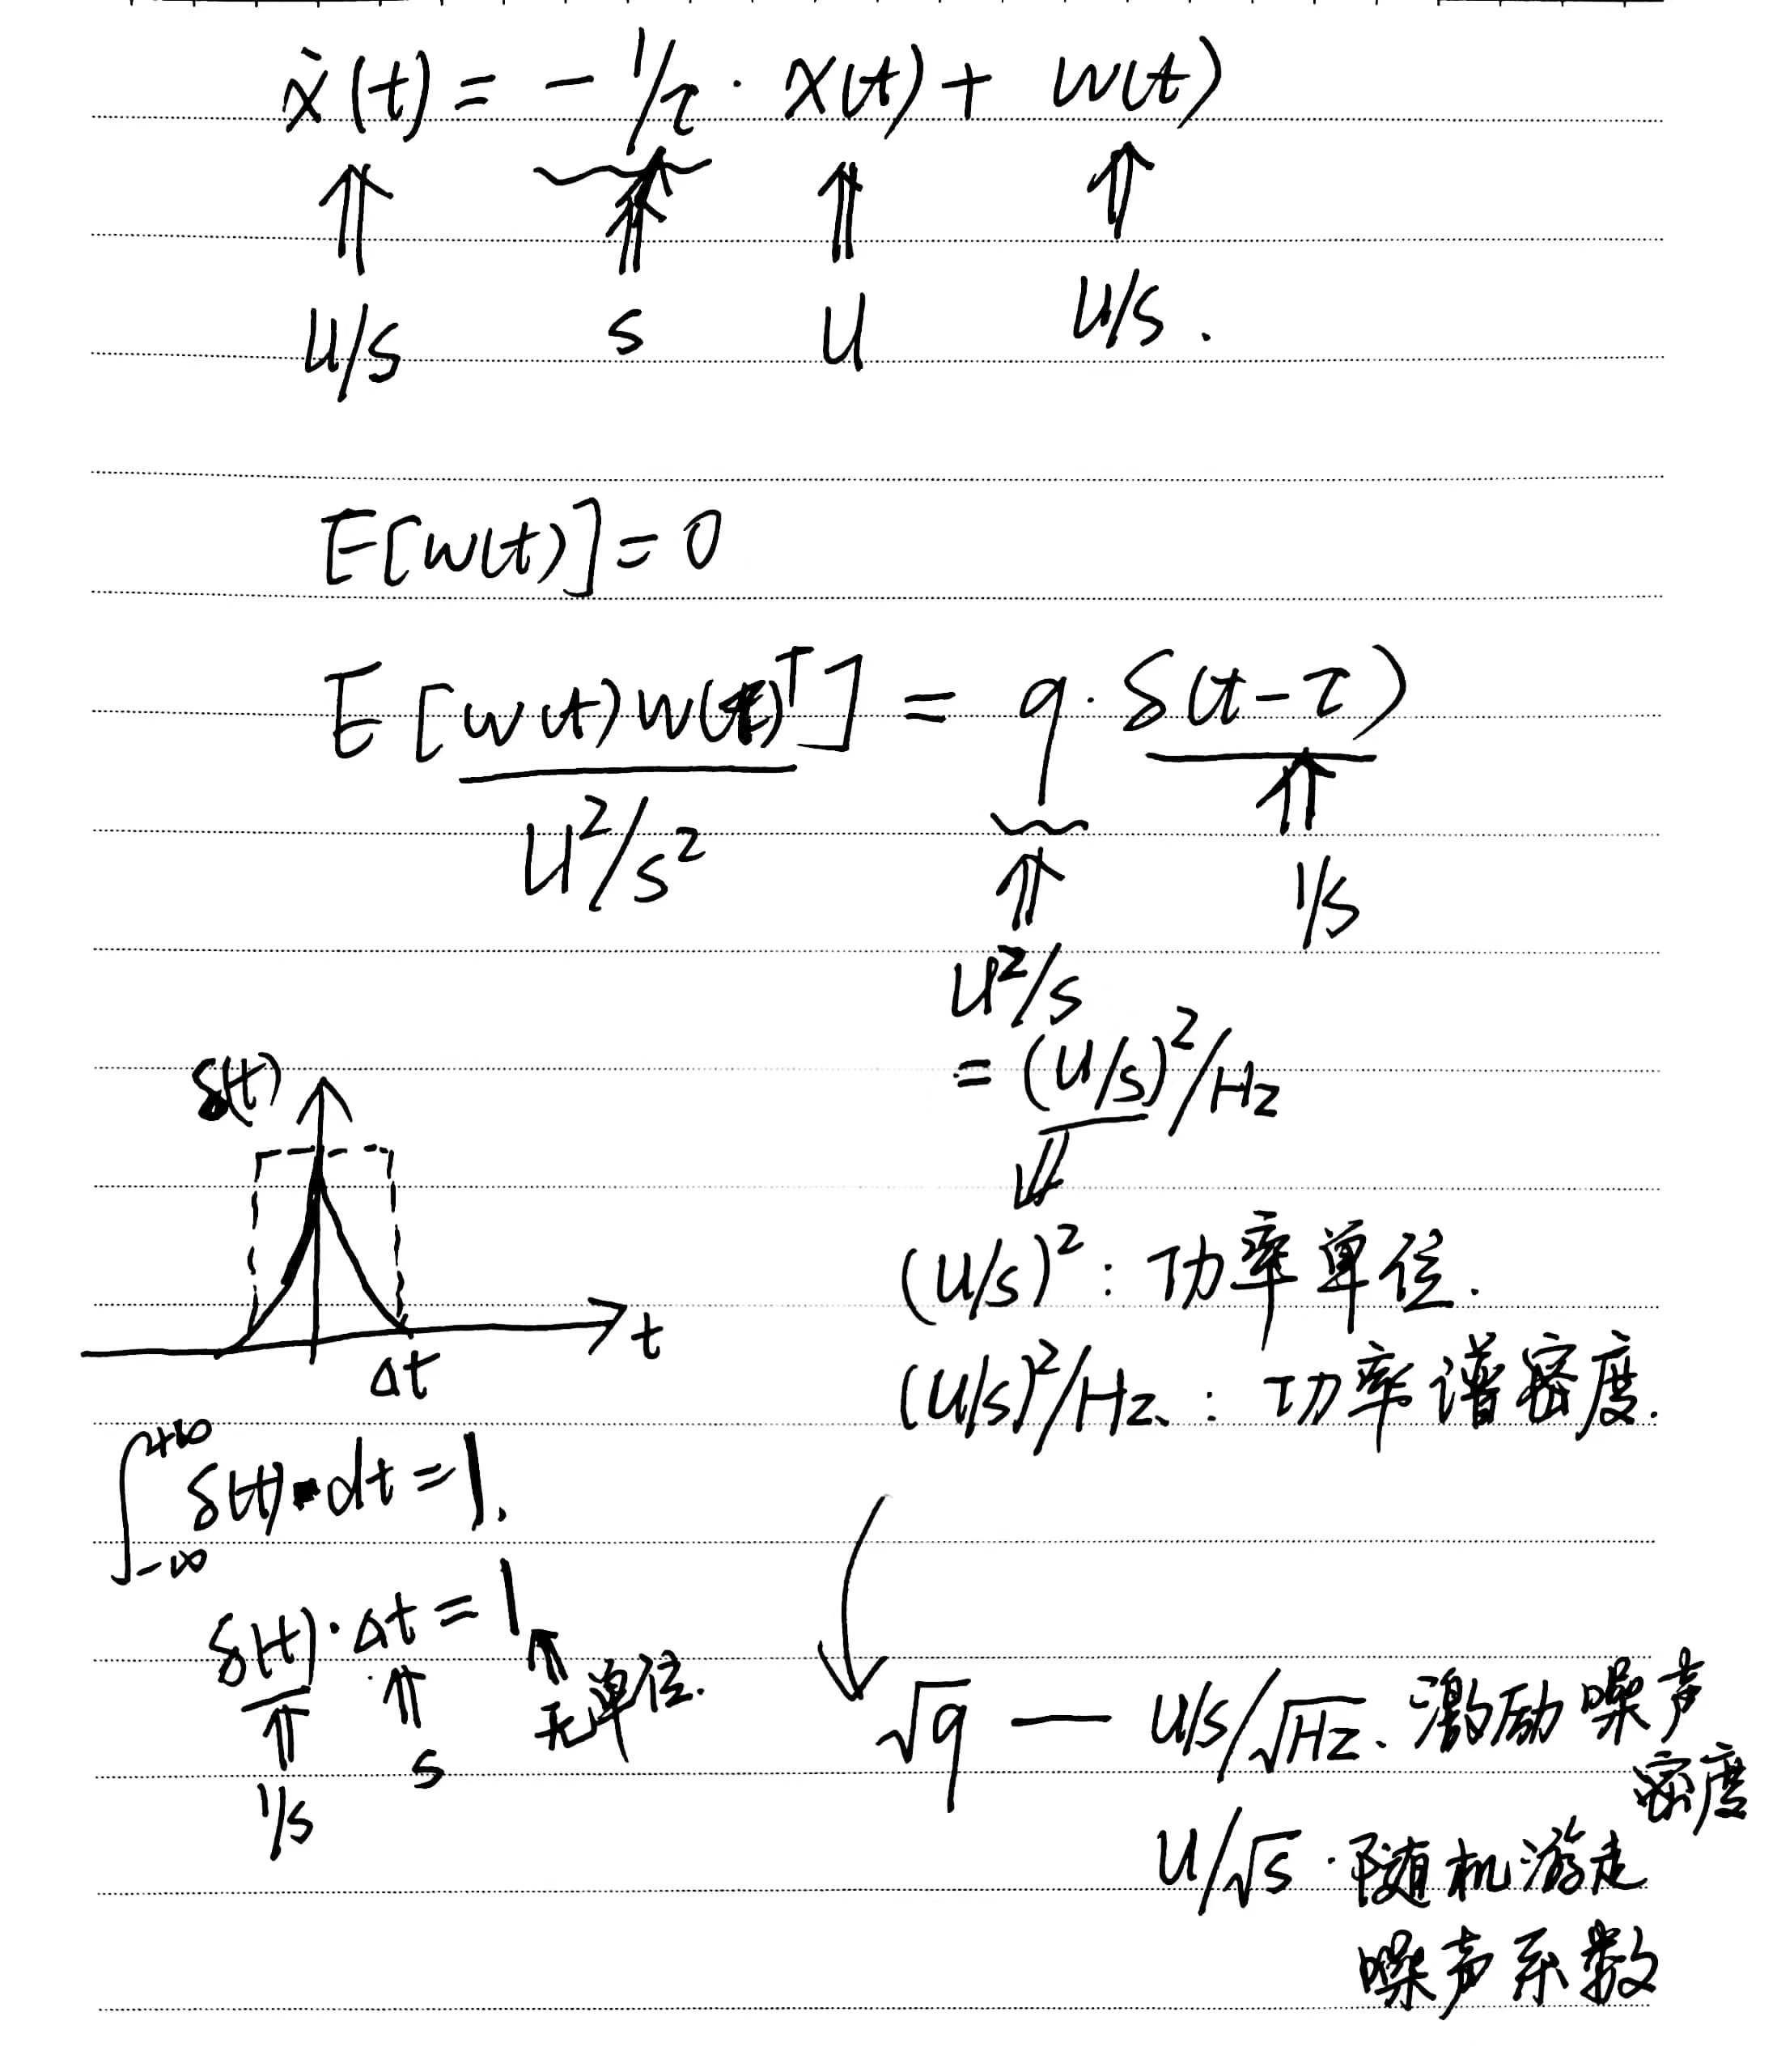 ẋ(t) = - 1/τ · x(t) + w(t)
U/s s U U/s.
E[w(t)] = 0
E[w(t)w(τ)ᵀ] = q · δ(t-τ)
U²/s² 1/s
U²/s
= (U/s)²/Hz
(U/s)²: 功率单位.
(U/s)²/Hz、: 功率谱密度.
δ(t)
t
Δt
∫₋∞⁺∞ δ(t)·dt = 1.
δ(t)·Δt = 1
无单位.
s
1/s
√q — U/s/√Hz、激励噪声
密度
U/√s · 随机游走
噪声系数